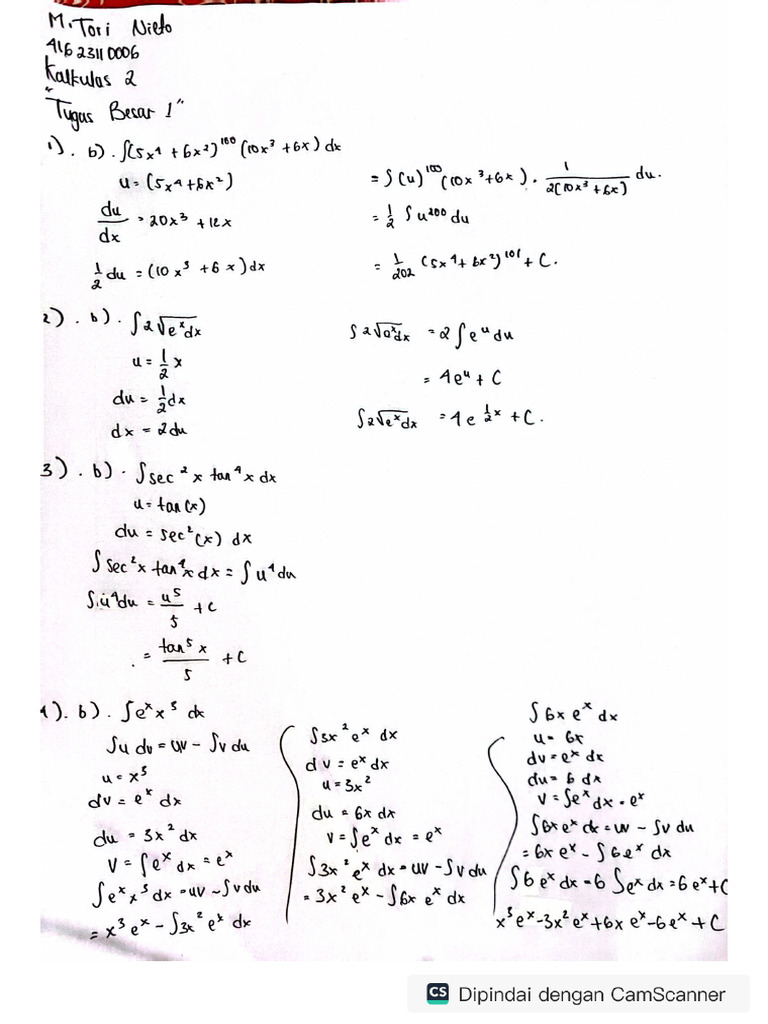 M. Tori Nieto
41623110006
Kalkulus 2
"Tugas Besar 1"
1). b). ∫(5x⁴ + 6x²)¹⁰⁰ (10x³ + 6x) dx
u = (5x⁴ + 6x²)
du/dx = 20x³ + 12x
½ du = (10x³ + 6x) dx
= ∫(u)¹⁰⁰ (10x³ + 6x) . 1/2(10x³ + 6x) du.
= ½ ∫u²⁰⁰ du
= 1/202 (5x⁴ + 6x²)¹⁰¹ + C.
2). b). ∫2√eˣdx
u = ½ x
du = ½ dx
dx = 2 du
∫2√eˣdx = 2∫eᵘ du
= 4eᵘ + C
∫2√eˣdx = 4e^½x + C.
3). b). ∫sec²x tan⁴x dx
u = tan(x)
du = sec²(x) dx
∫sec²x tan⁴x dx = ∫u⁴ du
∫u⁴du = u⁵/5 + C
= tan⁵x/5 + C
4). b). ∫eˣx³ dx
∫u dv = uv - ∫v du
u = x³
dv = eˣ dx
du = 3x² dx
v = ∫eˣ dx = eˣ
∫eˣx³dx = uv - ∫v du
= x³eˣ - ∫3x²eˣ dx
∫3x²eˣ dx
dv = eˣ dx
u = 3x²
du = 6x dx
v = ∫eˣ dx = eˣ
∫3x²eˣ dx = uv - ∫v du
= 3x²eˣ - ∫6x eˣ dx
∫6x eˣ dx
u = 6x
dv = eˣ dx
du = 6 dx
v = ∫eˣ dx = eˣ
∫6x eˣ dx = uv - ∫v du
= 6x eˣ - ∫6eˣ dx
∫6eˣ dx = 6∫eˣ dx = 6eˣ + C
x³eˣ - 3x²eˣ + 6x eˣ - 6eˣ + C
CS Dipindai dengan CamScanner